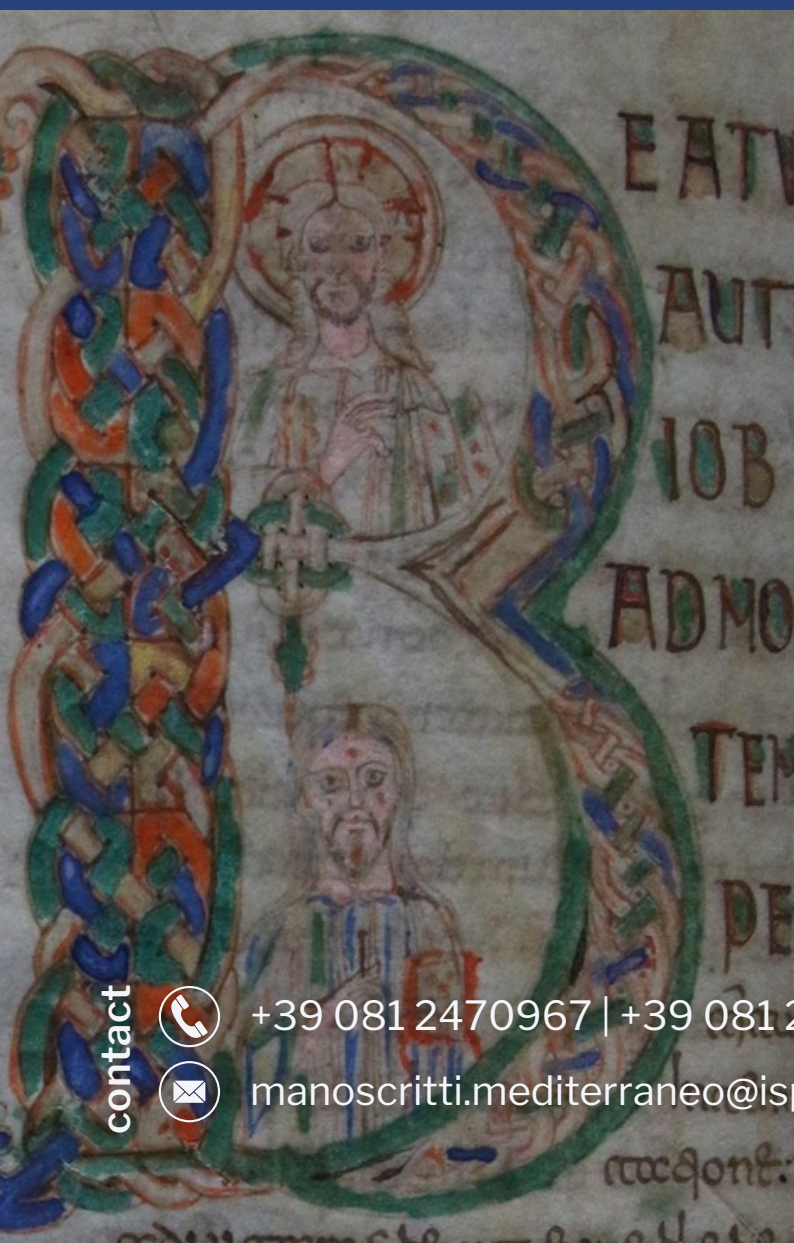 B
EATV
AUT
IOB
ADMO
TEM
PE
contact
+39 081 2470967 | +39 081 2
manoscritti.mediterraneo@isp